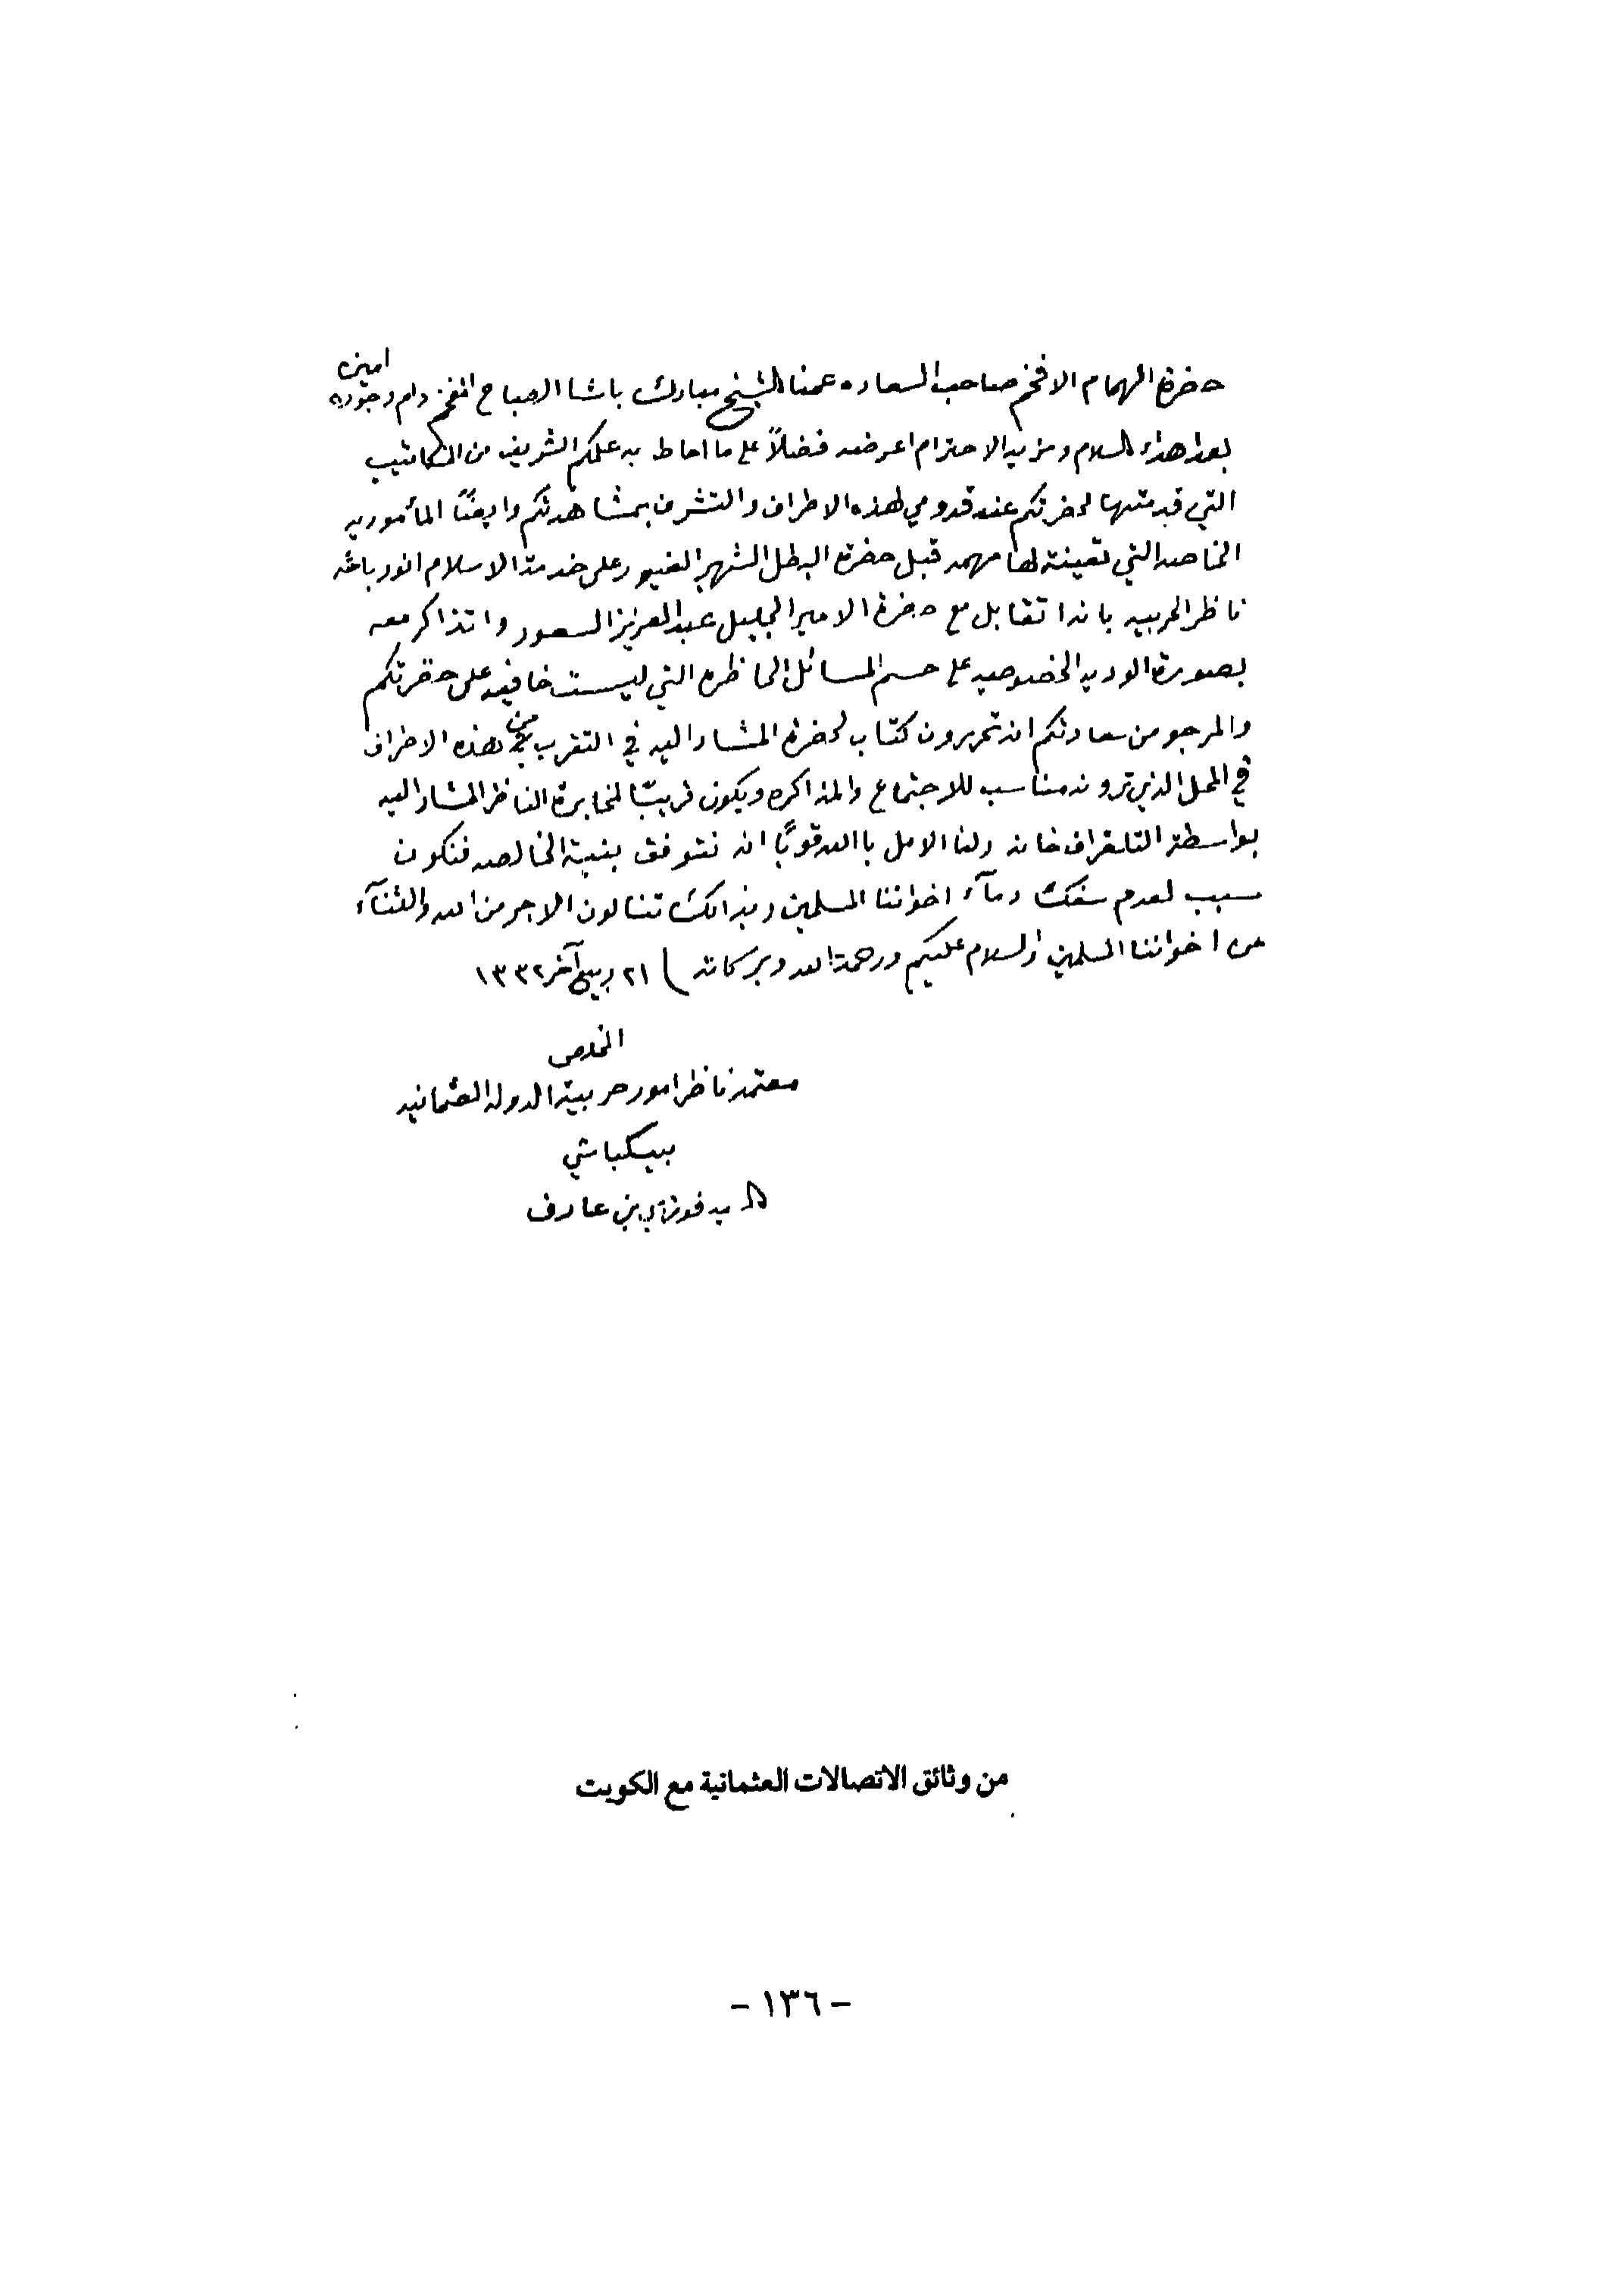 حضرة الهمام الافخم صاحب السعاده عمنا الشيخ مبارك باشا الصباح المفخم دام وجوده امين
بعد اهداء السلام ومزيد الاحترام اعرضه فضلاً على ما احاط به علمكم الشريف من المكاتيب
التي قدمتها لحضرتكم عند قدومي لهذه الاطراف والتشرف بمشاهدتكم وايضًا المأموريه
الخاصه التي تعينة لها مهمه قبل حضرة البطل الشهير الغيور على خدمة الاسلام انور باشه
ناظر الحربيه بان اتقابل مع حضرة الامير الجليل عبد العزيز السعود واتذاكر معه
بصورة الوديه الخصوصيه على حسم المسائل الحاظره التي ليست خافيه على حظرتكم
والمرجو من سعادتكم ان تحررون كتاب لحضرة المشار اليه في التقرب من هذه الاطراف
في المحل الذي ترونه مناسب للاجتماع والمذاكره ويكون قريبًا لمخابرة الناظر المشار اليه
بواسطة التلغراف خانه ولنا الامل باالله قويًا ان نتوفق بنية الخالصه فنكون
سبب لعدم سفك دمآء اخواننا المسلمين وبذالك تنالون الاجر من الله والثنآء
من اخواننا المسلمين والسلام عليكم ورحمة الله وبركاته ) ٢١ ربيع آخر ١٣٣٢
المخلص
معتمد ناظر امور حربية الدولة العثمانيه
بيكباشي
السيد فوزي بن عارف
من وثائق الاتصالات العثمانية مع الكويت
- ١٣٦ -